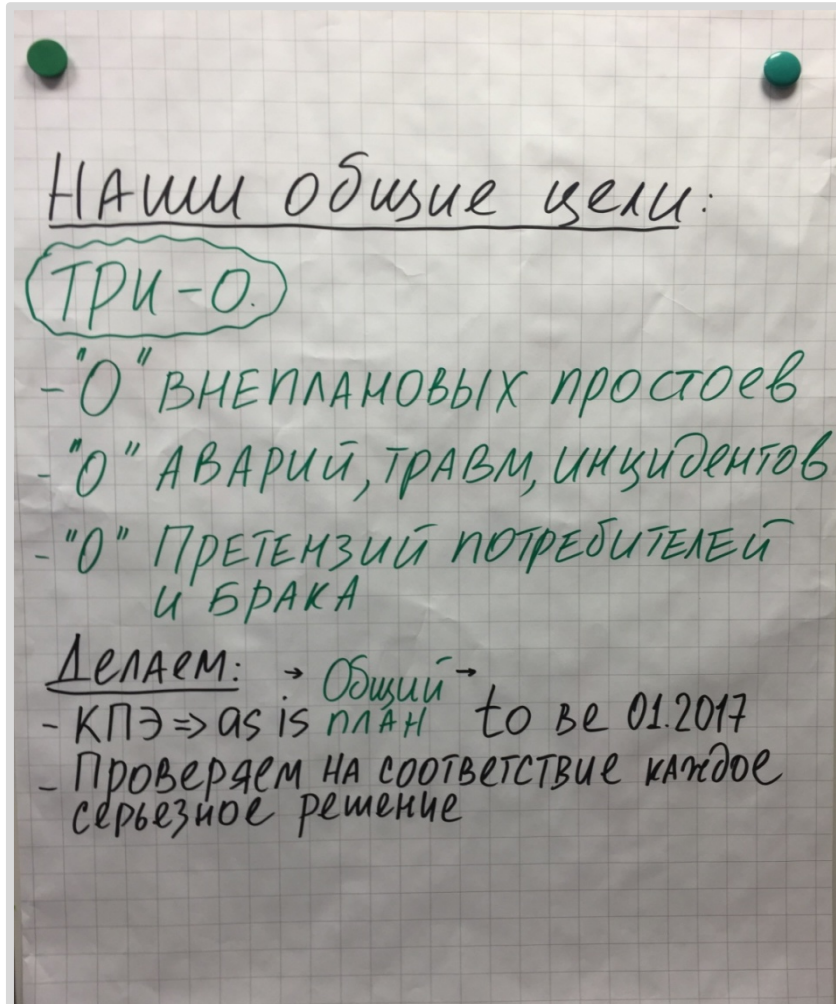 Наши общие цели:
ТРИ-О.
- "О" ВНЕПЛАНОВЫХ простоев
- "О" АВАРИЙ, ТРАВМ, инцидентов
- "О" ПРЕТЕНЗИЙ потребителей
и БРАКА
Делаем:
- КПЭ => as is → Общий план → to be 01.2017
- Проверяем на соответствие каждое
серьезное решение